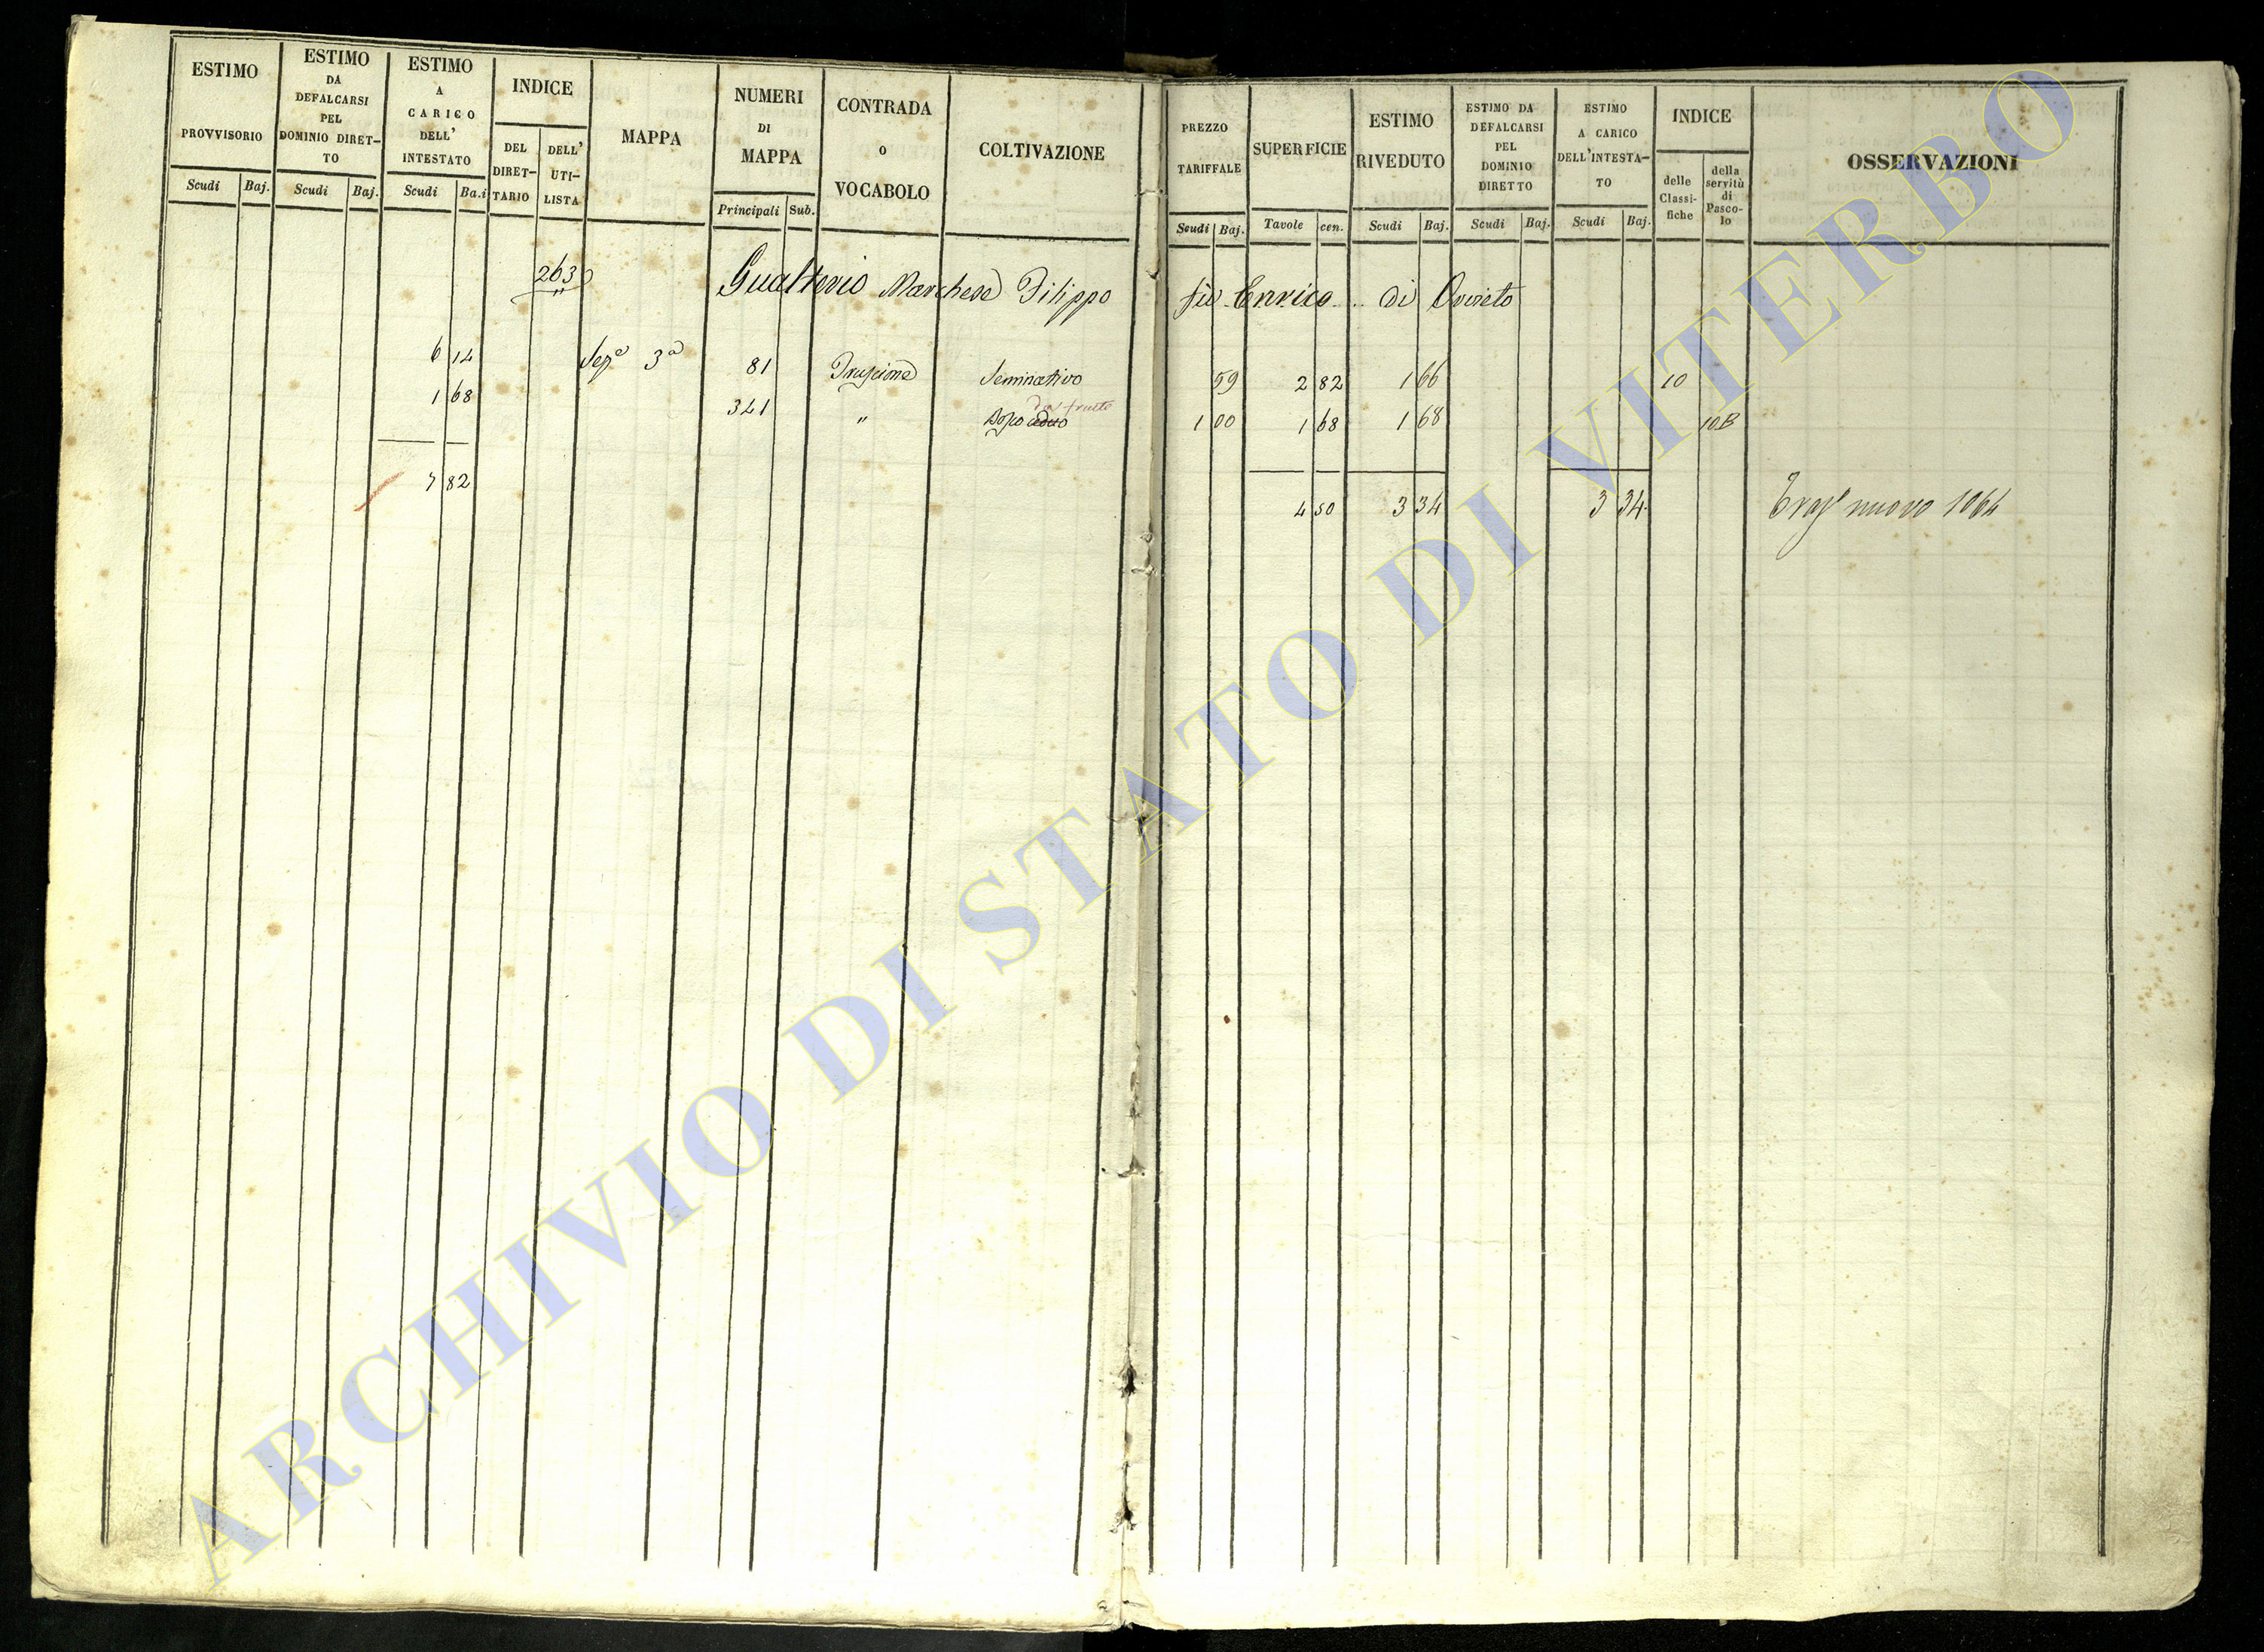 ESTIMO PROVVISORIO
Scudi Baj.
ESTIMO DA DEFALCARSI PEL DOMINIO DIRET-TO
Scudi Baj.
ESTIMO A CARICO DELL' INTESTATO
Scudi Ba.i
INDICE
DEL DIRET-TARIO
DELL' UTI-LISTA
MAPPA
NUMERI DI MAPPA
Principali Sub.
CONTRADA O VOCABOLO
COLTIVAZIONE
PREZZO TARIFFALE
Scudi Baj.
SUPERFICIE
Tavole cen.
ESTIMO RIVEDUTO
Scudi Baj.
ESTIMO DA DEFALCARSI PEL DOMINIO DIRETTO
Scudi Baj.
ESTIMO A CARICO DELL'INTESTA-TO
Scudi Baj.
INDICE
delle Classi-fiche
della servitù di Pasco-lo
OSSERVAZIONI
263 Gualterio Marchese Filippo fù Enrico .. di Orvieto
6 14 Seze 3a 81 Seminativo 59 2 82 1 66 10
1 68 341 " da frutto
Bosco ceduo 1 00 1 68 1 68 10B
7 82 4 50 3 34 3 34 nuovo 1064
ARCHIVIO DI STATO DI VITERBO